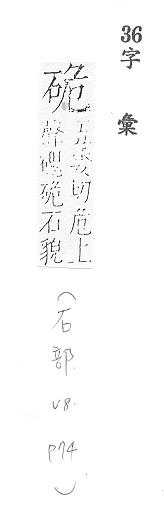 36字 彙
硊
五委切危上
聲硊硊石貌
(石部 V8. P74)